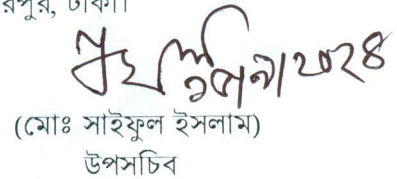 রপুর, ঢাকা।
(মোঃ সাইফুল ইসলাম)
উপসচিব